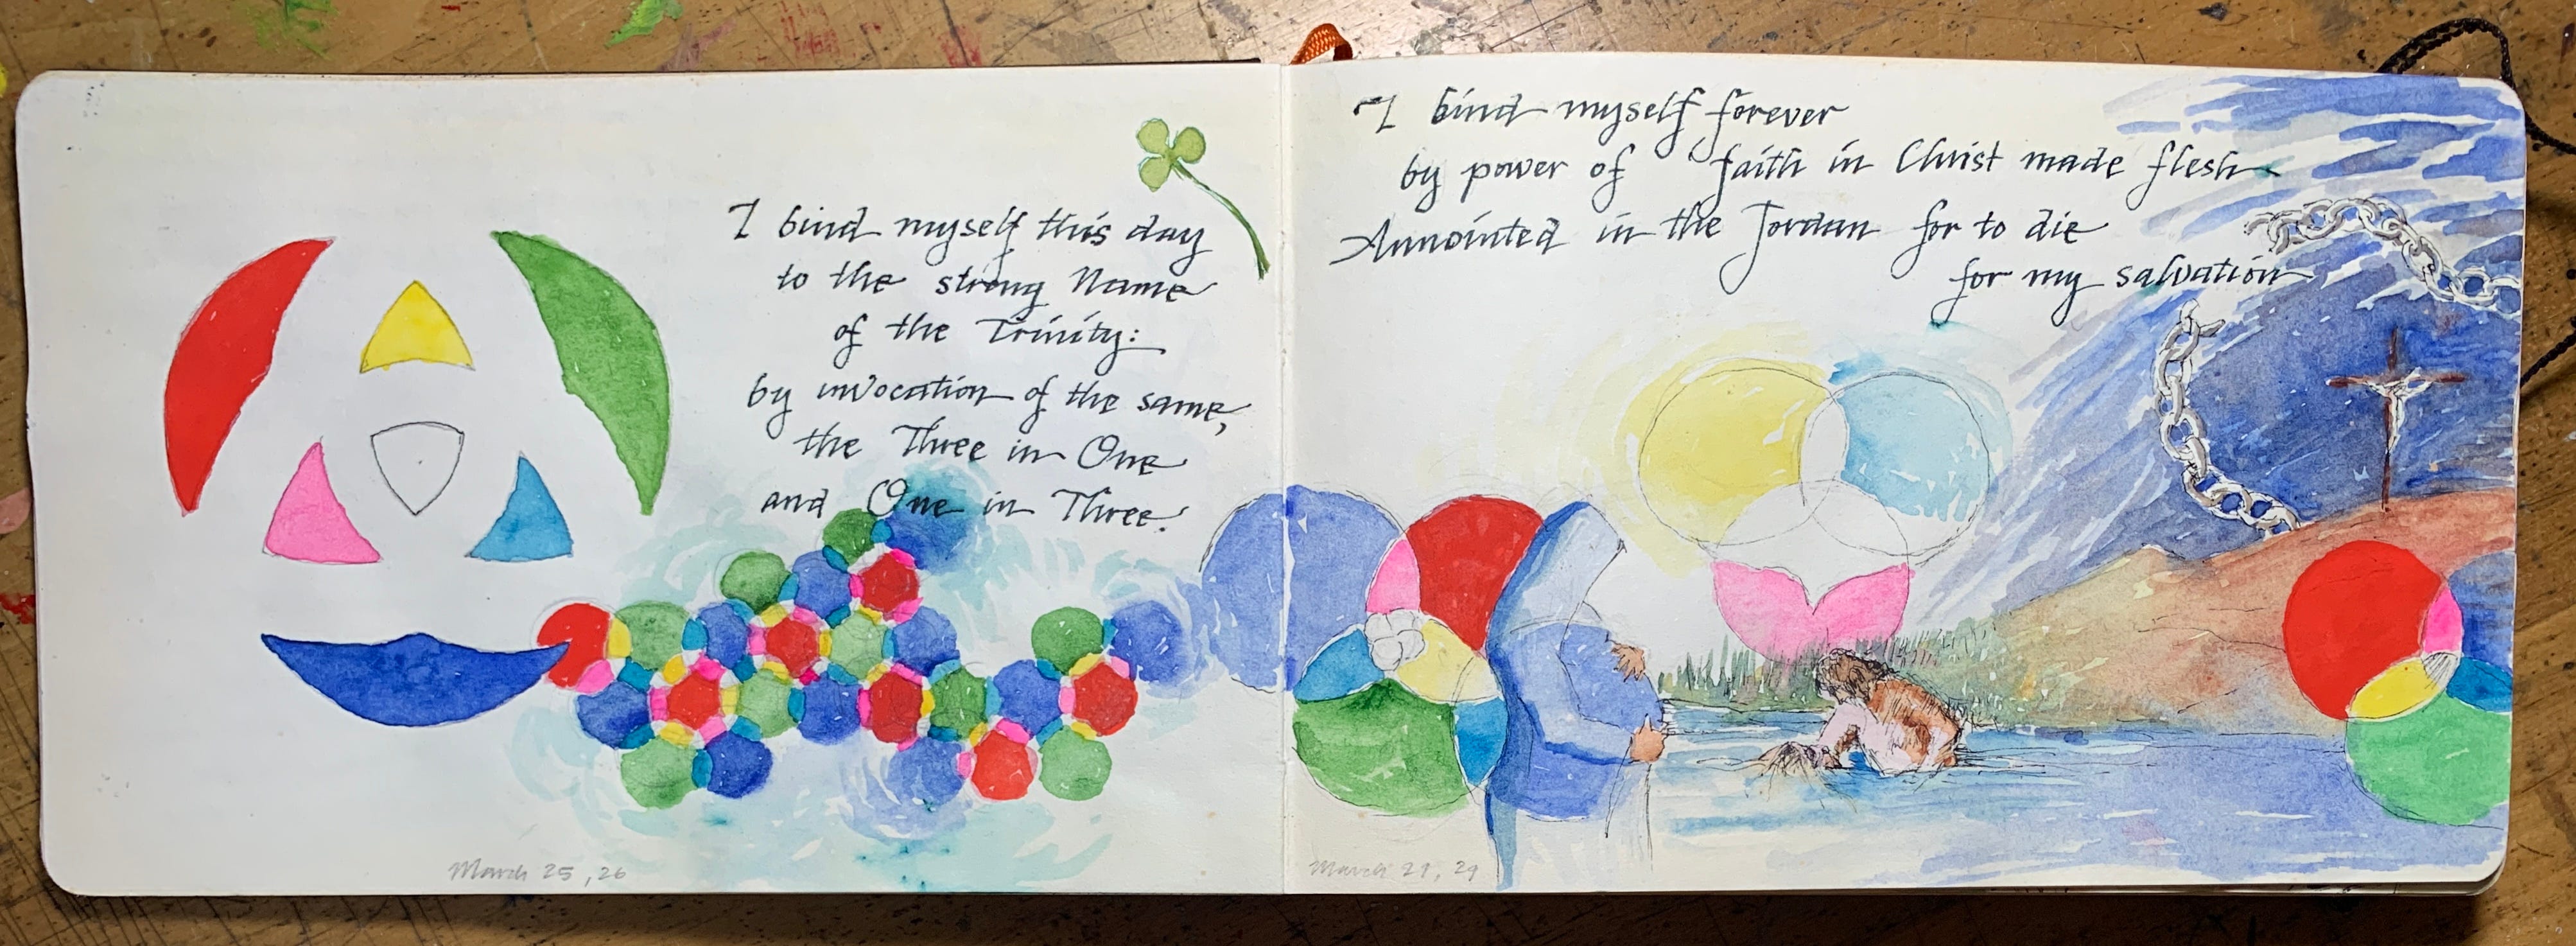 I bind myself this day
to the strong Name
of the Trinity:
by invocation of the same,
the Three in One
and One in Three.
March 25, 26
I bind myself forever
by power of faith in Christ made flesh
Annointed in the Jordan for to die
for my salvation
March